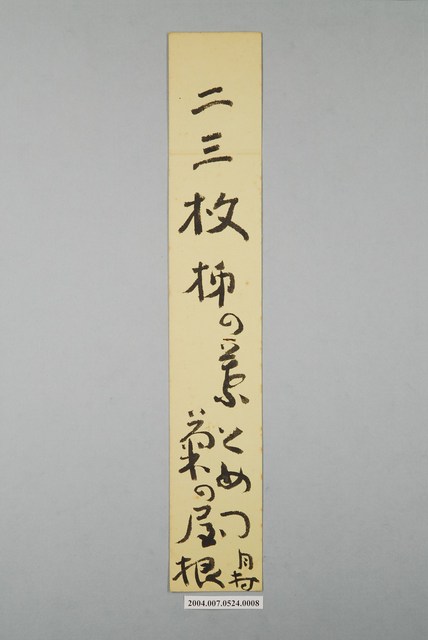 二三枚柿の葉とめつ
藁の屋根
月村
2004.007.0524.0008